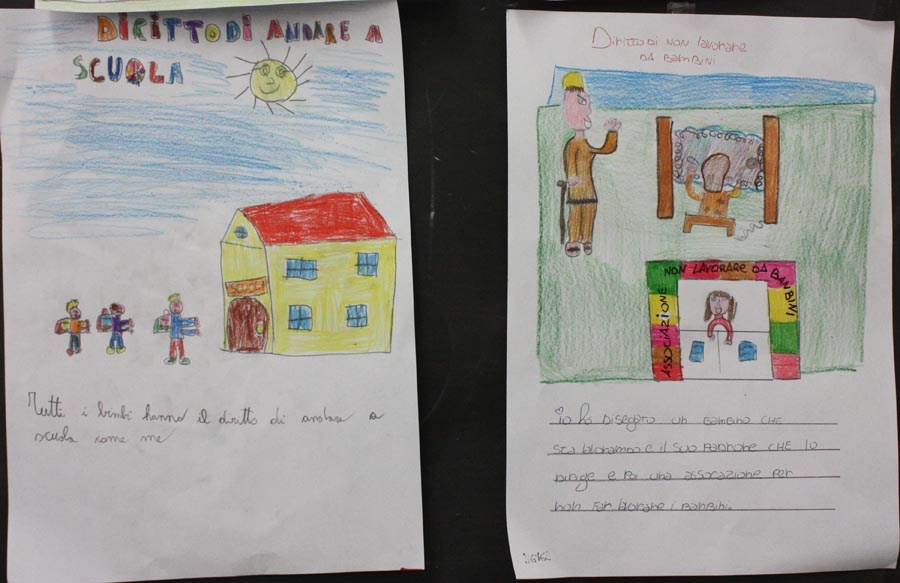 DIRITTO DI ANDARE A
SCUOLA
SCUOLA
Tutti i bimbi hanno il diritto di andare a
scuola come me
Diritto di non lavorare
da bambini
ASSOCIAZIONE NON LAVORARE DA BAMBINI
io ho Disegato un bambino CHE
sta lavorando e il suo padrone CHE lo
dirige e poi una assocazione per
non far lavorare i bambini.